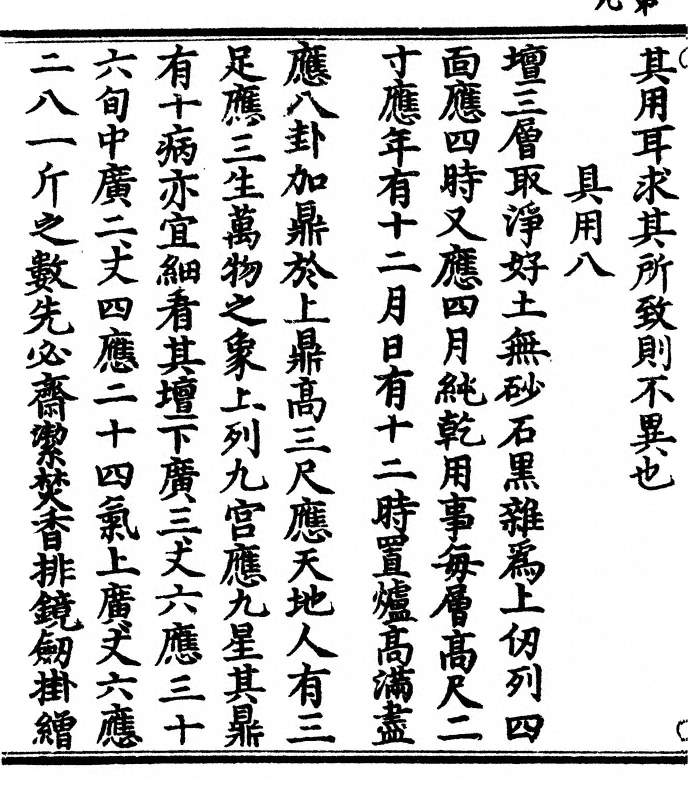 其用耳求其所致則不異也
具用八
壇三層取淨好土無砂石黑雜爲上仞列四
面應四時又應四月純乾用事每層高尺二
寸應年有十二月日有十二時置爐高滿盡
應八卦加鼎於上鼎高三尺應天地人有三
足應三生萬物之象上列九宮應九星其鼎
有十病亦宜細看其壇下廣三丈六應三十
六旬中廣二丈四應二十四氣上廣丈六應
二八一斤之數先必齋潔焚香排鏡劒掛繒